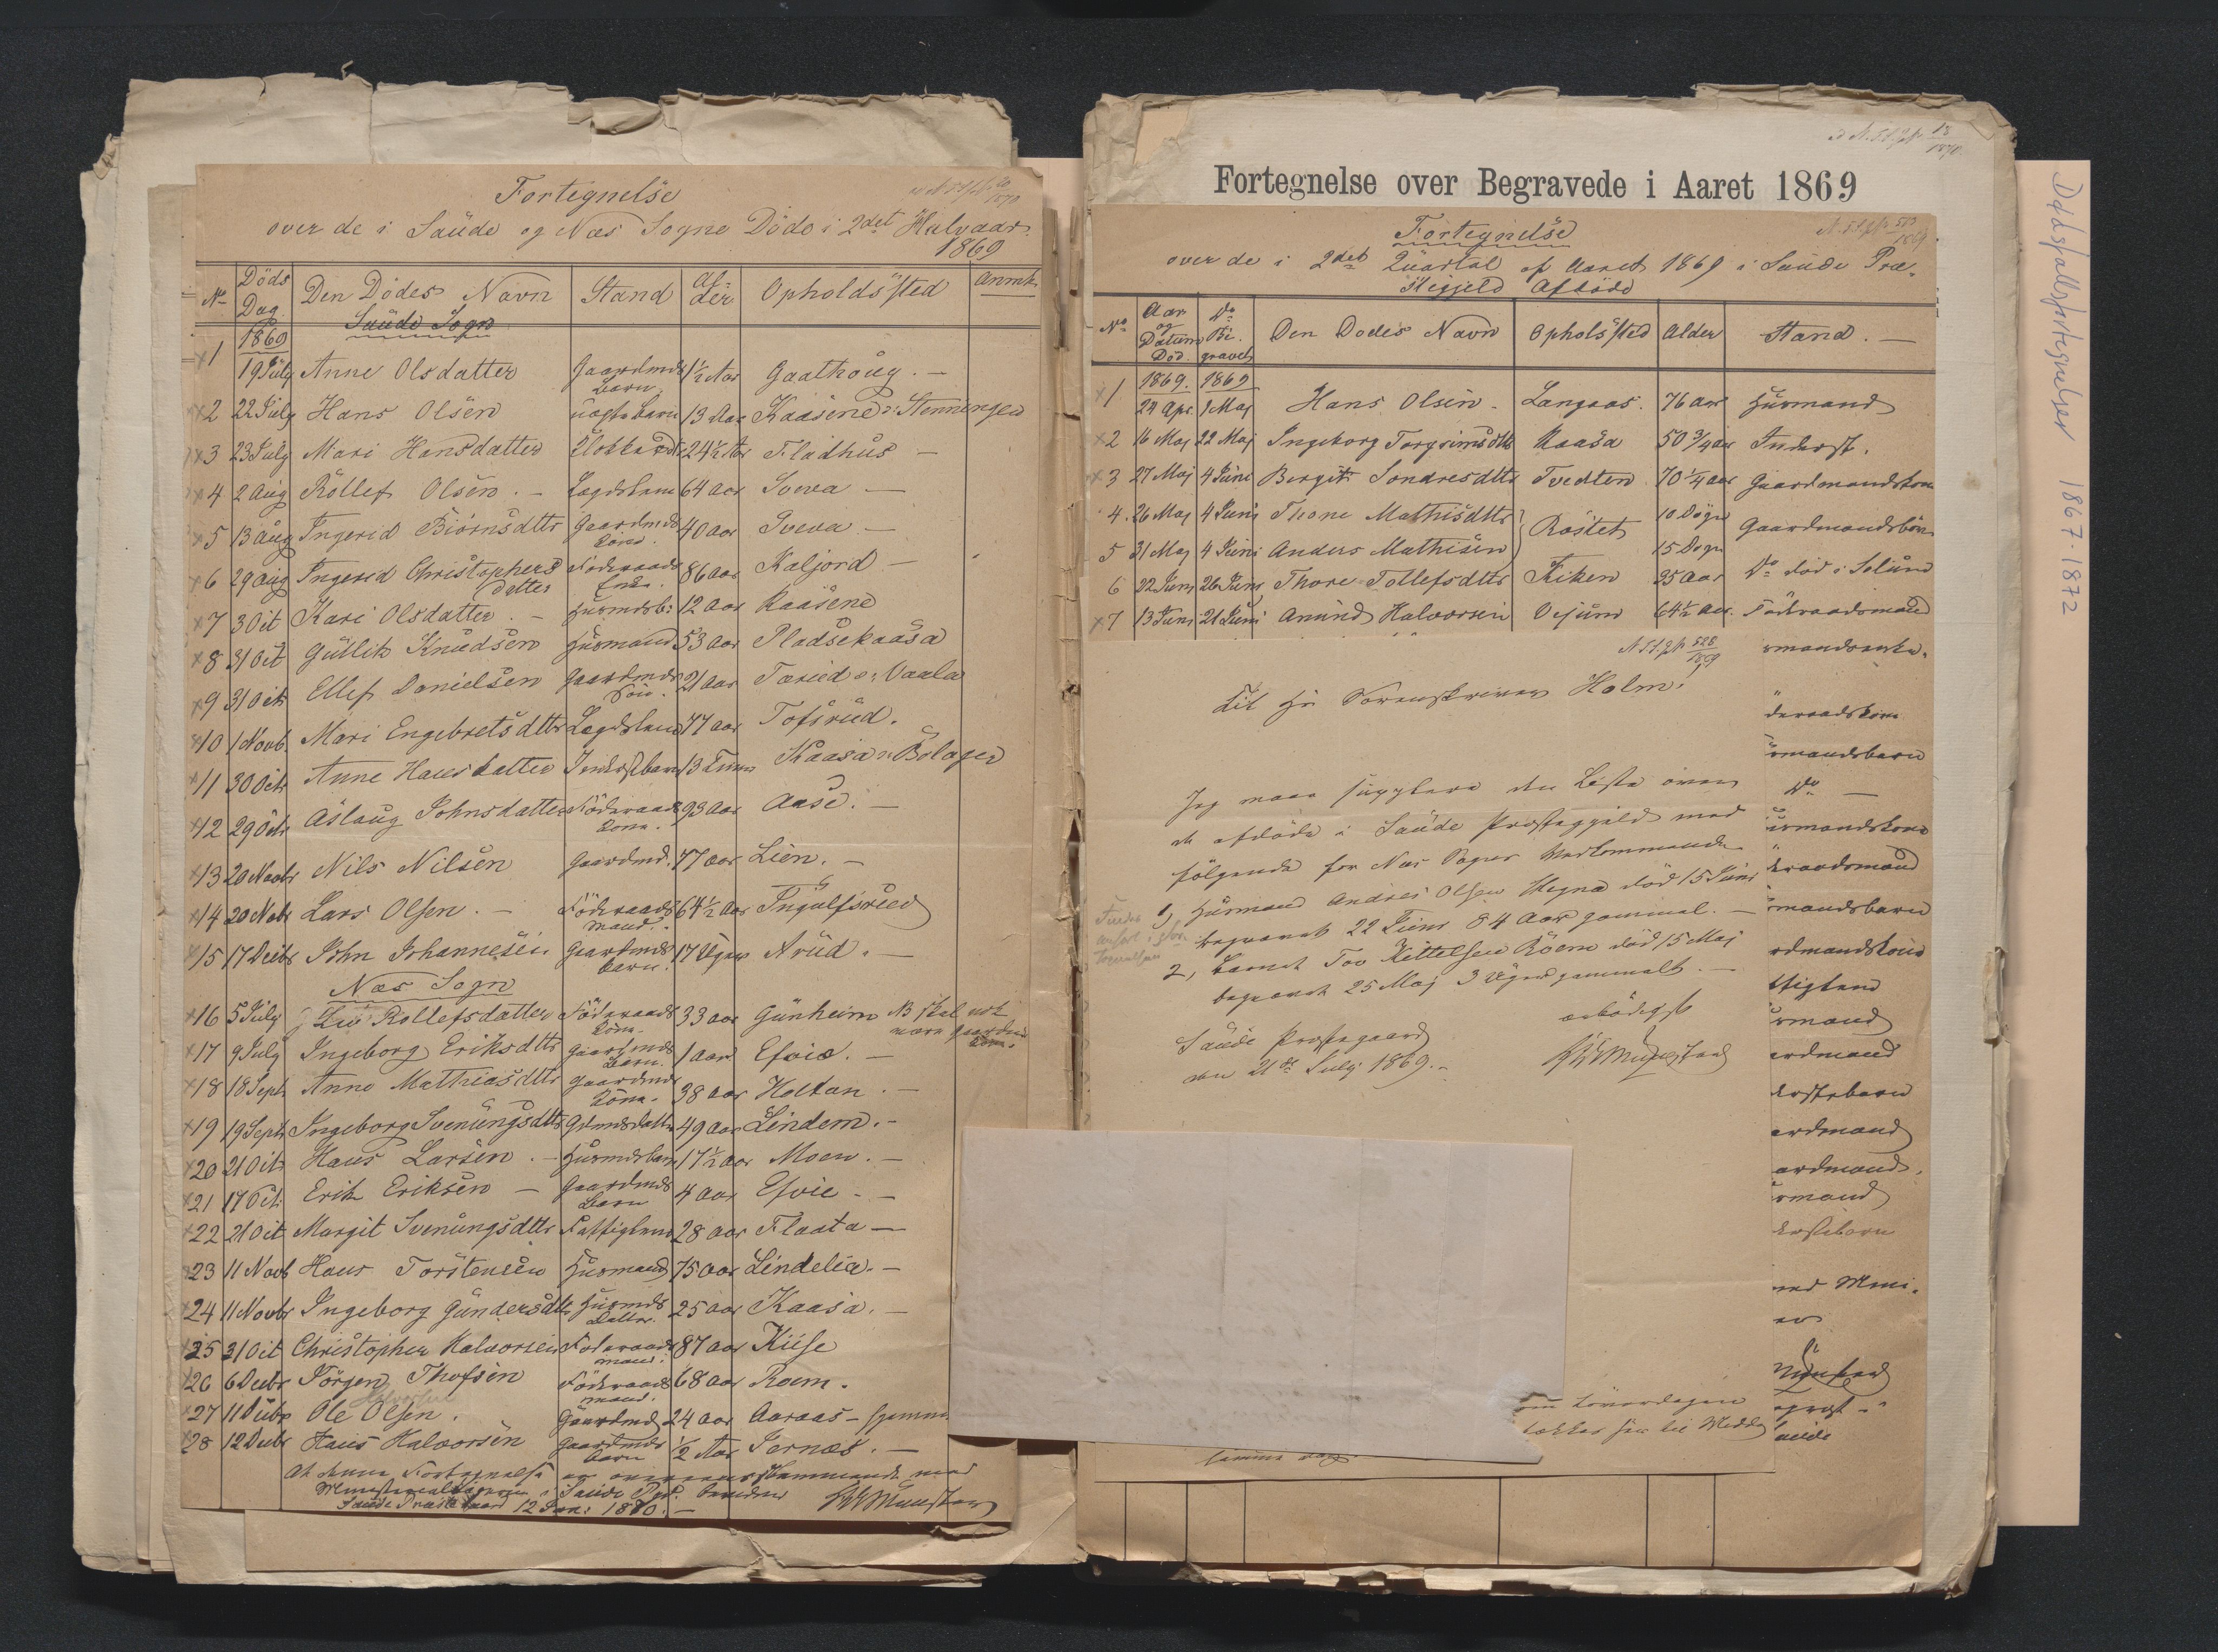 Fortegnelse
over de i Saude og Nes Sogne Döde i 2det Halvaar
1869
No Döds Dag Den Dödes Navn Stand Alder Opholdssted Anmk.
Saude Sogn
1869
1 19 July Anne Olsdatter Gaardmds Barn 1½ Aar Gaathoug. —
2 22 July Hans Olsen uægte Barn 13 Aar Kaasene v. Stenningen
3 23 July Mari Hansdatter 24½ Aar Fladhus —
4 2 Aug Rollef Olsen. — Lægdslem 64 Aar Sveva —
5 13 Aug Ingerid Biörnsdtr Gaardmds Kone. 40 Aar Sveva —
6 29 Aug Ingerid Christophersdatter Föderaads Enke. 86 Aar Kaljord —
7 3 Oct Kari Olsdatter — Husmdsb: 12 Aar Kaasene
8 31 Oct Gullik Knudsen Husmand 53 Aar Pladsekaasa
9 31 Octr Ellef Danielsen Gaardmds Sön. 21 Aar Vaala
10 1 Novb. Mari Engebretsdtr Lægdslem 77 Aar Tofsrud.
11 30 Octr Anne Hansdatter Inderstbarn 13 Kaasa
12 29 Octr Aslaug Johnsdatter Föderaads Kone. 93 Aar Aase. —
13 20 Novbr Nils Nilsen Gaardmd. 77 Aar Lien. —
14 20 Nobr Lars Olsen. — Föderaads Mand. 64½ Aar Ingulfsrud
15 17 Decbr John Johannesen Gaardmds barn. 17 Uger Aarud. —
Næs Sogn
16 5 July Liv Rollefsdatter Föderaads Kone. 33 Aar Gunheim NB skal
være Gaardmds Kone.
17 9 July Ingeborg Eriksdtr Gaardmds Barn. 1 Aar Efvie. —
18 18 Septr Anne Mathiasdtr Gaardmds Kone. 38 Aar Holtan. —
19 19 Septr Ingeborg Svenungsdtr Gdmdsdatter 49 Aar Lindem. —
20 21 Octr Hans Larsen. — Husmdsbarn 17½ Aar Moen. —
21 17 Oct. Erik Eriksen — Gaardmds Barn 4 Aar Efvie. —
22 21 Oct Margit Svenungsdtr Fattiglem 28 Aar Flaata —
23 11 Novb Hans Torstensen Husmand 75 Aar Lindelia. —
24 11 Novbr Ingeborg Gundersdtr Husmds Datter. 25 Aar Kaasa. —
25 31 Oct Christopher Halvorsen Föderaads mand. 87 Aar
26 6 Decbr Jörgen Thofsen Föderaads mand. 68 Aar Roem.
Halvorsen
27 11 Decbr Ole Olsen. Gaardmd 24 Aar Aaraas —
28 12 Decbr Hans Halvorsen Gaardmds barn ½ Aar Jernæs. —
At denne Fortegnelse er overensstemmende med
Ministerialbogen i Saude Pgd. bevidner
Saude Præstegaard 12 Jan: 1870. — Munster
Fortegnelse over Begravede i Aaret 1869
Fortegnelse
over de i 2det Quartal af Aaret 1869 i Saude Præ-
stegjeld Afdöde
No Aar og Datum Död. Do Be-gravet Den Dödes Navn Opholdssted Alder Stand. —
1869. 1869
1 24 Apr. 1 Maj Hans Olsen — Langaas. 76 Aar Husmand
2 16 Maj 22 Maj Ingeborg Torgrimsdtr Kaasa 50¾ Aar Inderst.
3 27 Maj 4 Juni Bergit Sondresdtr Tvedten 70¼ Aar Gaardmandskone
4. 26 Maj 4 Juni Thone Mathisdtr Röstet 10 Dögn Gaardmandsbörn
5 31 Maj 4 Juni Anders Mathisen 15 Dögn
6 22 Juni 26 Juni Thore Tollefsdtr Fiken 25 Aar Do död i Solum
7 13 Juni 21 Juni Amund Halvorsen Vejum 64½ Aar. Föderaadsmand
Til Hr Sorenskriver Holm!
Jeg maa supplere den Liste over
de afdöde i Saude Præstegjeld med
fölgende for Nes Sogns Vedkommende
1, Husmand Andres Olsen Hegna död 15 Juni
begravet 22 Juni 84 Aar gammel. —
2, Barnet Tov Kittelsen Röem död 15 Maj
begravet 25 Maj 3 Uger gammelt. —
Saude Præstegaard
den 21de July 1869. —
ærbödigst
Munster
daraadskone
Do —
ordmand
Dødsfallsfortegnelser 1867-1872